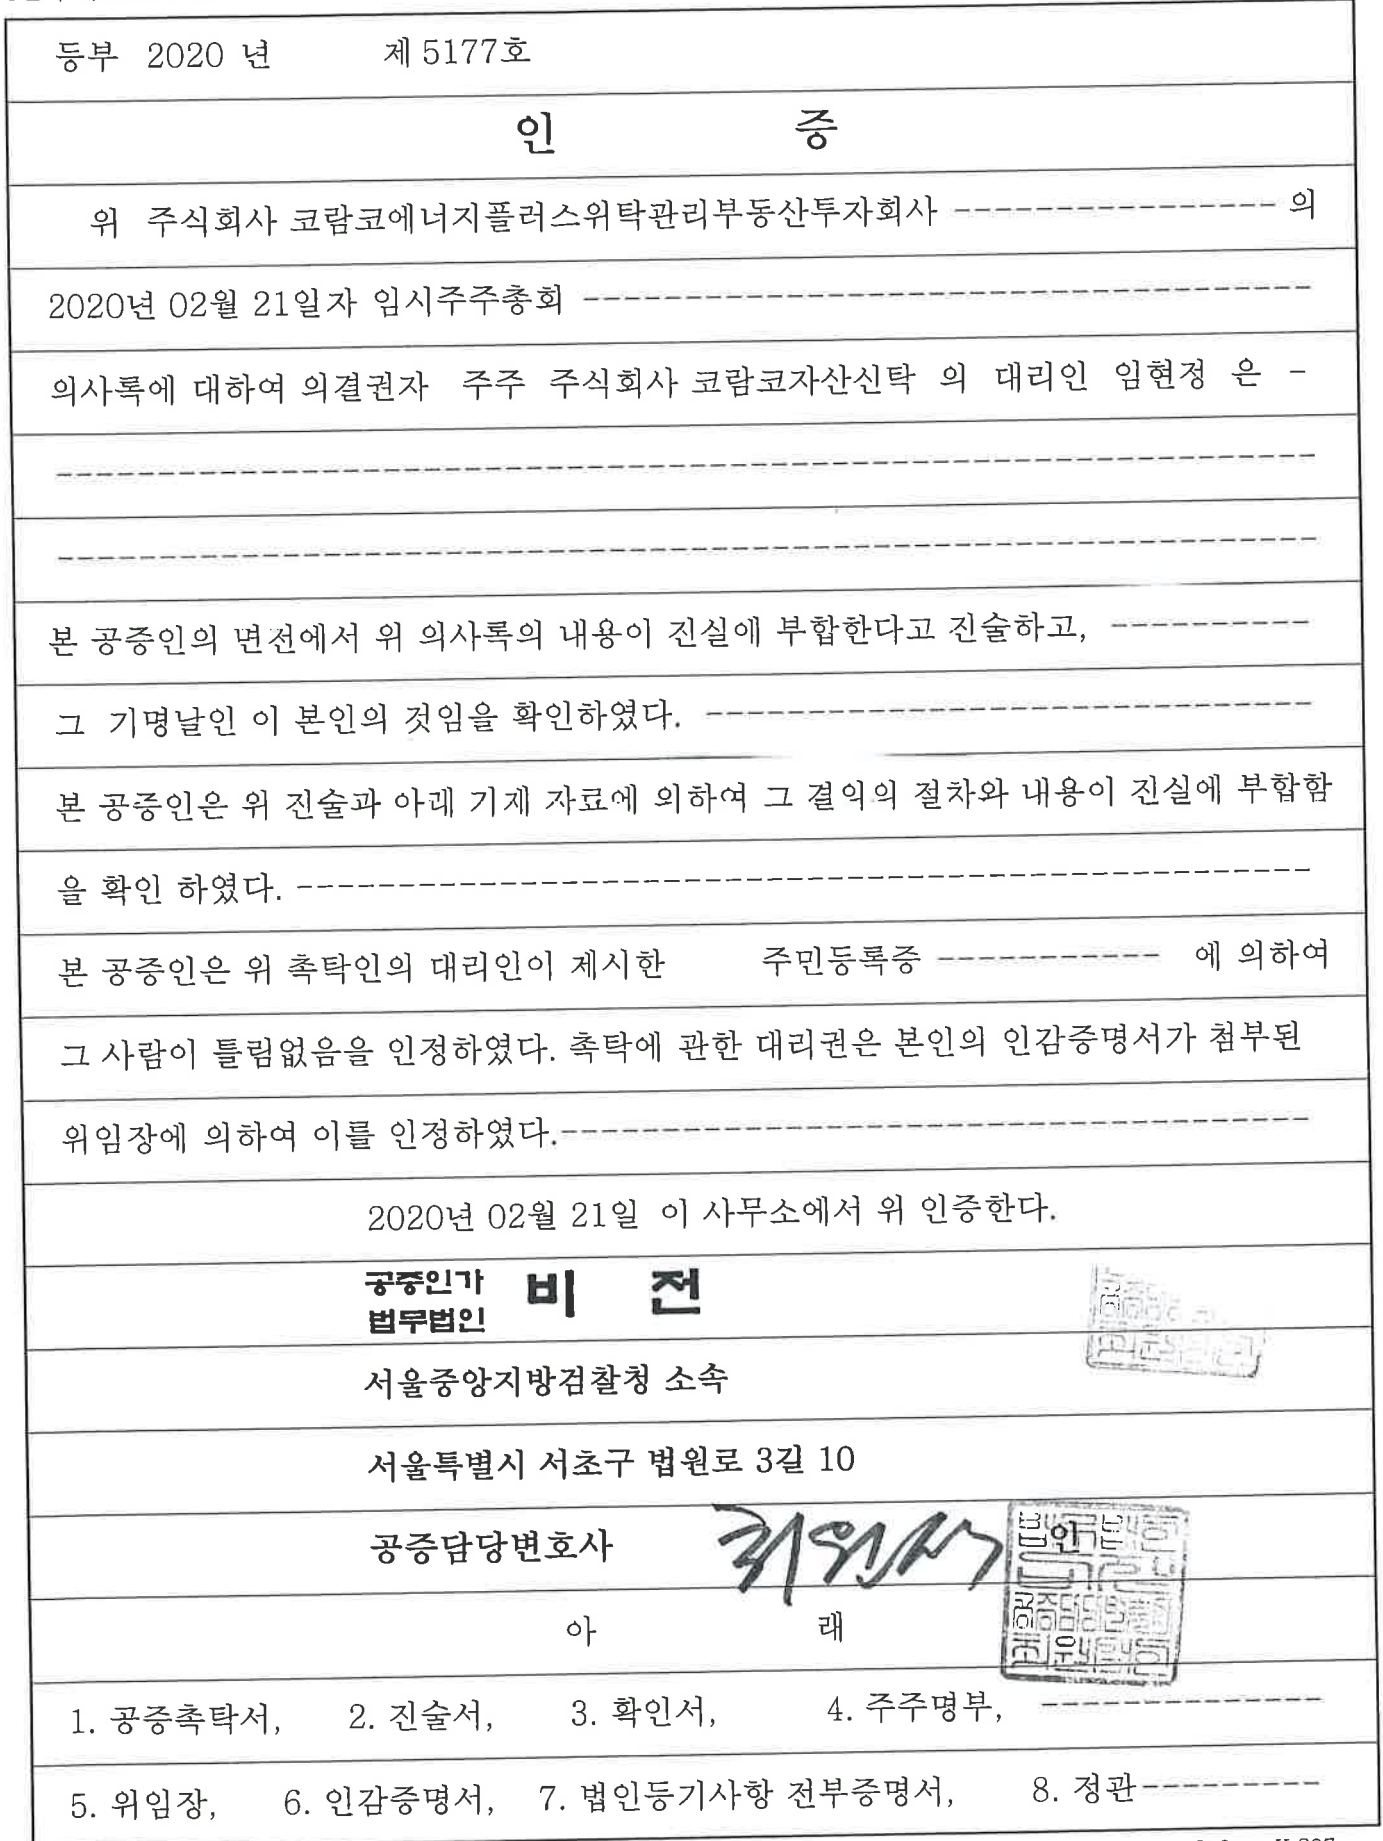 등부 2020 년 제 5177호
인 증
위 주식회사 코람코에너지플러스위탁관리부동산투자회사 ---------------- 의
2020년 02월 21일자 임시주주총회 ------------------------------------
의사록에 대하여 의결권자 주주 주식회사 코람코자산신탁 의 대리인 임현정 은 -
--------------------------------------------------------------
--------------------------------------------------------------
본 공증인의 면전에서 위 의사록의 내용이 진실에 부합한다고 진술하고, ----------
그 기명날인 이 본인의 것임을 확인하였다. ------------------------------
본 공증인은 위 진술과 아래 기재 자료에 의하여 그 결의의 절차와 내용이 진실에 부합함
을 확인 하였다. --------------------------------------------------
본 공증인은 위 촉탁인의 대리인이 제시한 주민등록증 ----------- 에 의하여
그 사람이 틀림없음을 인정하였다. 촉탁에 관한 대리권은 본인의 인감증명서가 첨부된
위임장에 의하여 이를 인정하였다.-------------------------------------
2020년 02월 21일 이 사무소에서 위 인증한다.
공증인가 법무법인 비 전
서울중앙지방검찰청 소속
서울특별시 서초구 법원로 3길 10
공증담당변호사 인
아 래
1. 공증촉탁서, 2. 진술서, 3. 확인서, 4. 주주명부, --------------
5. 위임장, 6. 인감증명서, 7. 법인등기사항 전부증명서, 8. 정관---------